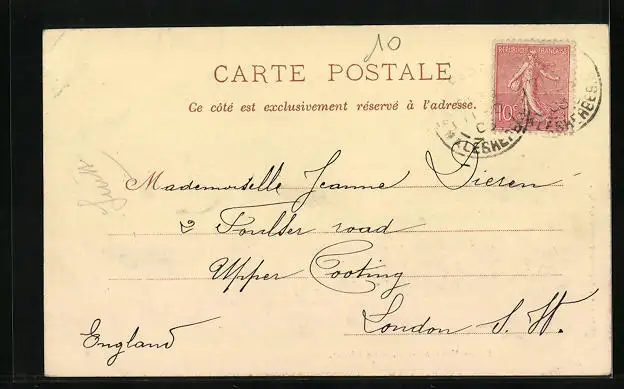 10
CARTE POSTALE
RÉPUBLIQUE FRANÇAISE
10c
Ce côté est exclusivement réservé à l'adresse.
MALESHERBES
Mademoiselle Jeanne Dieren
2 Foulser road
Upper Tooting
London S. W.
England